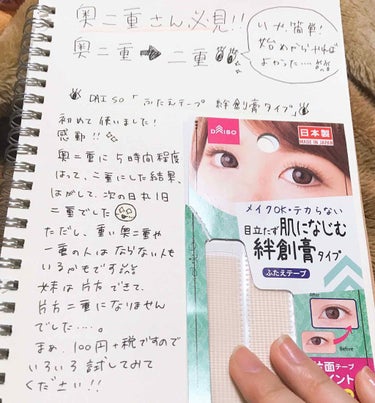 奥二重さん必見!!
奥二重➡二重
いや、簡単!
始めからすれば
よかった….
DAISO「ふたえテープ 絆創膏タイプ」
初めて使いました!
感動!!
奥二重に5時間程度
はって、二重にした結果、
はがして、次の日丸1日
二重でした
ただし、重い奥二重や
一重の人はならない人も
いるかもです
妹は片方できて、
片方二重になりません
でした….。
まあ、100円+税ですので
いろいろ試してみて
ください!!
DAISO
日本製
MADE IN JAPAN
メイクOK・テカらない
目立たず肌になじむ
絆創膏タイプ
ふたえテープ
After
Before
片面テープ
ポイント